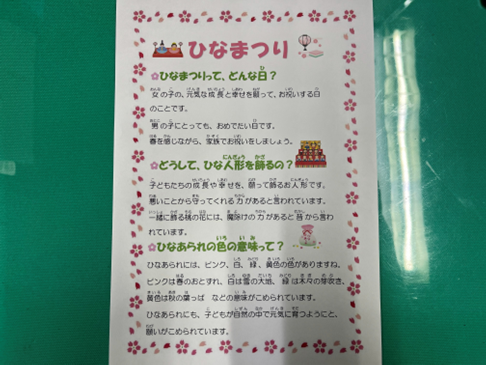 ひなまつり
ひなまつりって、どんな日？
女の子の、元気な成長と幸せを願って、お祝いする日
のことです。
男の子にとっても、おめでたい日です。
春を感じながら、家族でお祝いをしましょう。
どうして、ひな人形を飾るの？
子どもたちの成長や幸せを、願って飾るお人形です。
悪いことから守ってくれる力があると言われています。
一緒に飾る桃の花には、魔除けの力があると昔から言わ
れています。
ひなあられの色の意味って？
ひなあられには、ピンク、白、緑、黄色の色がありますね、
ピンクは春のおとずれ、白は雪の大地、緑は木々の芽吹き、
黄色は秋の葉っぱ などの意味がこめられています。
ひなあられにも、子どもが自然の中で元気に育つようこと、
願いがこめられています。